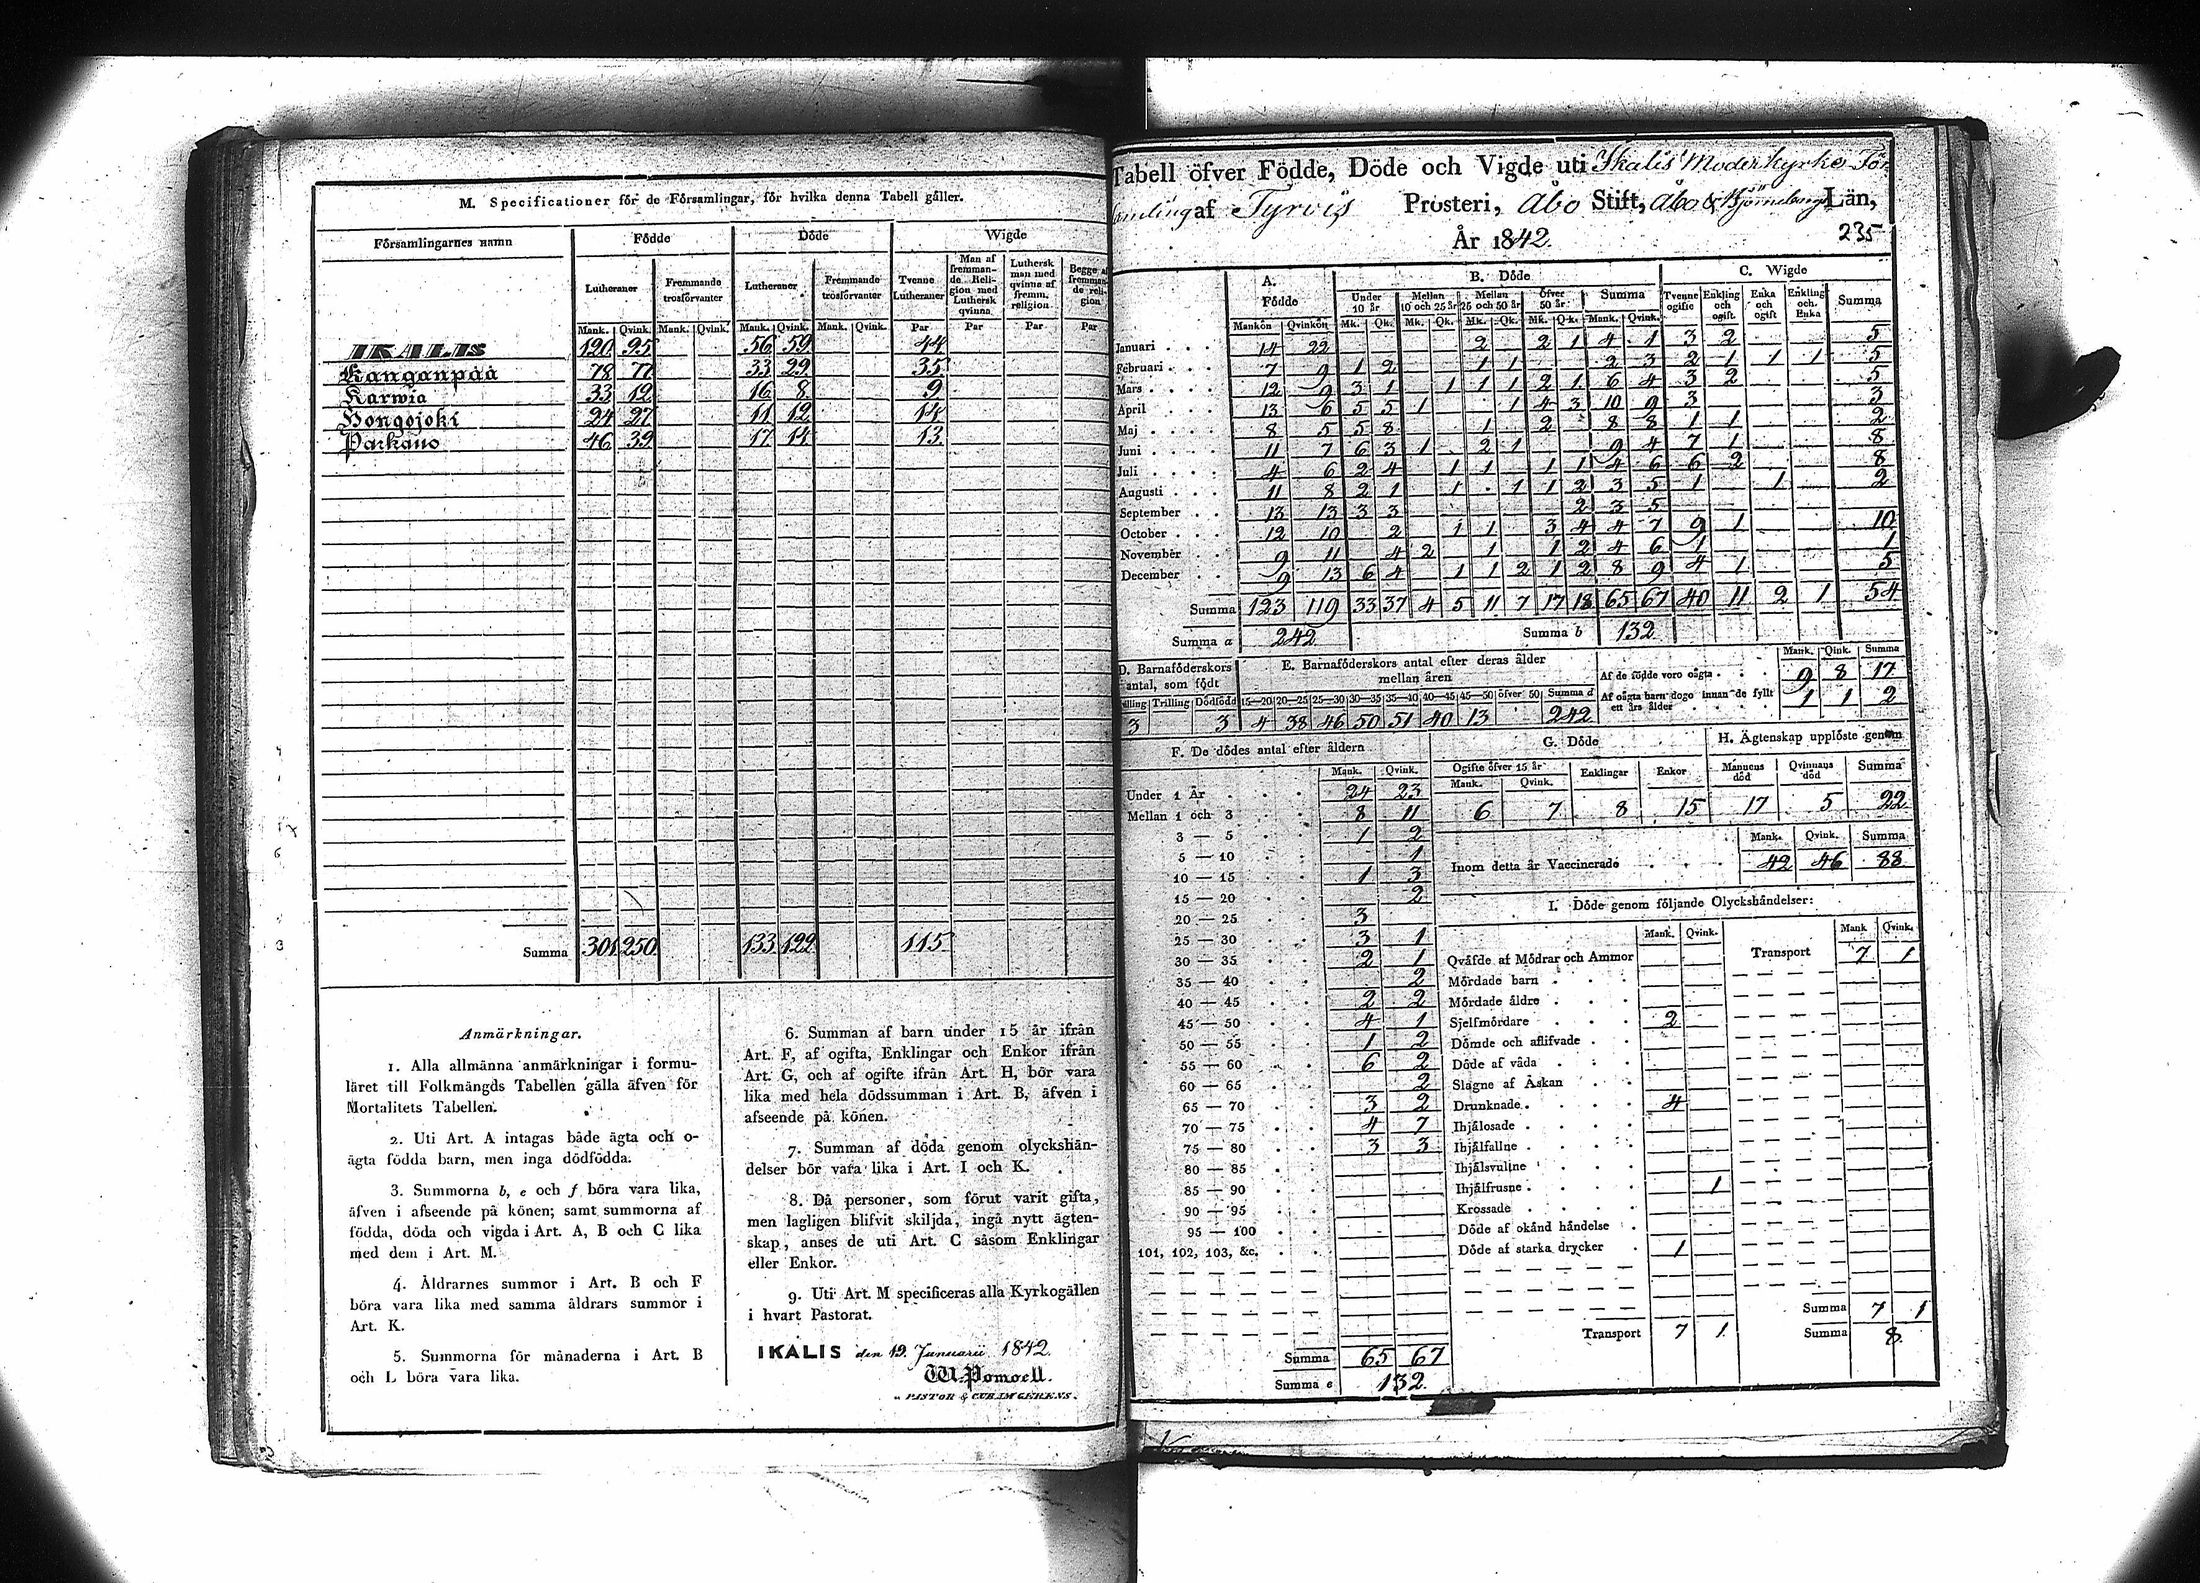 M. Specificationer för de Församlingar, för hvilka denna Tabell gäller.
Församlingarnes namn | Födde | Döde | Wigde
Lutheraner | Fremmande trosförvanter | Lutheraner | Fremmande trosförvanter | Tvenne Lutheraner | Man af fremman-de Reli-gion med Luthersk qvinna | Luthersk man med qvinna af fremm. religion | Begge af fremman-de reli-gion
Mank. Qvink. Mank. Qvink. Mank. Qvink. Mank. Qvink. Par Par Par Par
IKALIS 120 95 56 59 44
Kanganpää 78 77 33 29 35
Karwia 33 12 16 8 9
Hongojoki 24 27 11 12 14
Parkano 46 39 17 14 13
Summa 301 250 133 122 115
Anmärkningar.
1. Alla allmänna anmärkningar i formu-
läret till Folkmängds Tabellen gälla äfven för
Mortalitets Tabellen.
2. Uti Art. A intagas både ägta och o-
ägta födda barn, men inga dödfödda.
3. Summorna b, e och f böra vara lika,
äfven i afseende på könen; samt summorna af
födda, döda och vigda i Art. A, B och C lika
med dem i Art. M.
4. Åldrarnes summor i Art. B och F
böra vara lika med samma åldrars summor i
Art. K.
5. Summorna för månaderna i Art. B
och L böra vara lika.
6. Summan af barn under 15 år ifrån
Art. F, af ogifta, Enklingar och Enkor ifrån
Art. G, och af ogifte ifrån Art. H, bör vara
lika med hela dödssumman i Art. B, äfven i
afseende på könen.
7. Summan af döda genom olyckshän-
delser bör vara lika i Art. I och K.
8. Då personer, som förut varit gifta,
men lagligen blifvit skiljda, ingå nytt ägten-
skap, anses de uti Art. C såsom Enklingar
eller Enkor.
9. Uti Art. M specificeras alla Kyrkogällen
i hvart Pastorat.
IKALIS den 19. Januarii 1842.
W. Pomoell.
PASTOR & CURAM GERENS.
Tabell öfver Födde, Döde och Vigde uti Ikalis Moderkyrko För
samling af Tyrvis Prosteri, Åbo Stift, Åbo & Björneborgs Län,
År 1842. 235
A. Födde | B. Döde | C. Wigde
Under 10 år | Mellan 10 och 25 år | Mellan 25 och 50 år | Öfver 50 år | Summa | Tvenne ogifte | Enkling och ogift. | Enka och ogift | Enkling och Enka | Summa
Mankön Qvinkön Mk. Qk. Mk. Qk. Mk. Qk. Mk. Qk. Mank. Qvink.
Januari 14 22 2 2 1 4 1 3 2 5
Februari 7 9 1 2 1 1 2 3 2 1 1 1 5
Mars 12 9 3 1 1 1 1 2 1 6 4 3 2 5
April 13 6 5 5 1 1 4 3 10 9 3 3
Maj 8 5 5 8 1 2 8 8 1 1 2
Juni 11 7 6 3 1 2 1 9 4 7 1 8
Juli 4 6 2 4 1 1 1 1 4 6 6 2 8
Augusti 11 8 2 1 1 1 1 2 3 5 1 1 2
September 13 13 3 3 2 3 5
October 12 10 2 1 1 3 4 4 7 9 1 10
November 9 11 4 2 1 1 2 4 6 1 1
December 9 13 6 4 1 1 2 1 2 8 9 4 1 5
Summa 123 119 33 37 4 5 11 7 17 18 65 67 40 11 2 1 54
Summa a 242 Summa b 132
D. Barnaföderskors antal, som födt
Trilling Dödfödd
3 3
E. Barnaföderskors antal efter deras ålder mellan åren
15—20 20—25 25—30 30—35 35—40 40—45 45—50 öfver 50 Summa d
4 38 46 50 51 40 13 242
Mank. Qink. Summa
Af de födde voro oägta 9 8 17
Af oägta barn dogo innan de fyllt ett års ålder 1 1 2
F. De dödes antal efter åldern
Mank. Qvink.
Under 1 År 24 23
Mellan 1 och 3 8 11
3 — 5 1 2
5 — 10 1
10 — 15 1 3
15 — 20 2
20 — 25 3
25 — 30 3 1
30 — 35 2 1
35 — 40 2
40 — 45 2 2
45 — 50 4 1
50 — 55 1 2
55 — 60 6 2
60 — 65 2
65 — 70 3 2
70 — 75 4 7
75 — 80 3 3
80 — 85
85 — 90
90 — 95
95 — 100
101, 102, 103, &c.
Summa 65 67
Summa e 132
G. Döde
Ogifte öfver 15 år Enklingar Enkor
Mank. Qvink.
6 7 8 15
H. Ägtenskap upplöste genom
Mannens död Qvinnans död Summa
17 5 22
Mank. Qvink. Summa
Inom detta år Vaccinerade 42 46 88
I. Döde genom följande Olyckshändelser:
Mank. Qvink. Mank Qvink.
Qväfde af Mödrar och Ammor Transport 7 1
Mördade barn
Mördade äldre
Sjelfmördare 2
Dömde och aflifvade
Döde af våda
Slagne af Åskan
Drunknade 4
Ihjälosade
Ihjälfallne
Ihjälsvultne
Ihjälfrusne 1
Krossade
Döde af okänd händelse
Döde af starka drycker 1
Summa 7 1
Transport 7 1 Summa 8